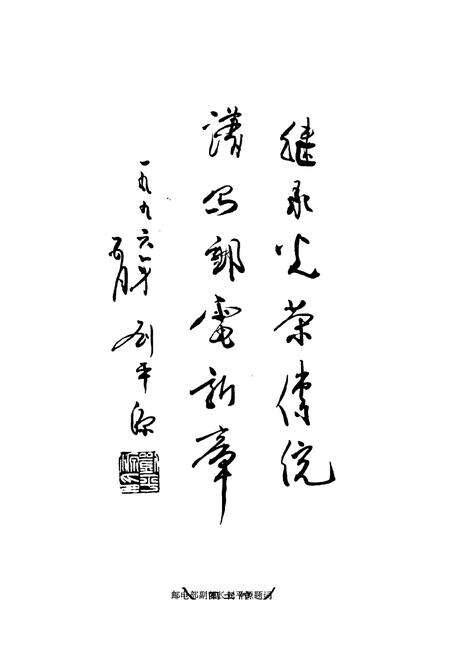 继承光荣傳统
谱写郵電新章
一九九六年
五月
刘平源
邮电部副部长刘平源题词